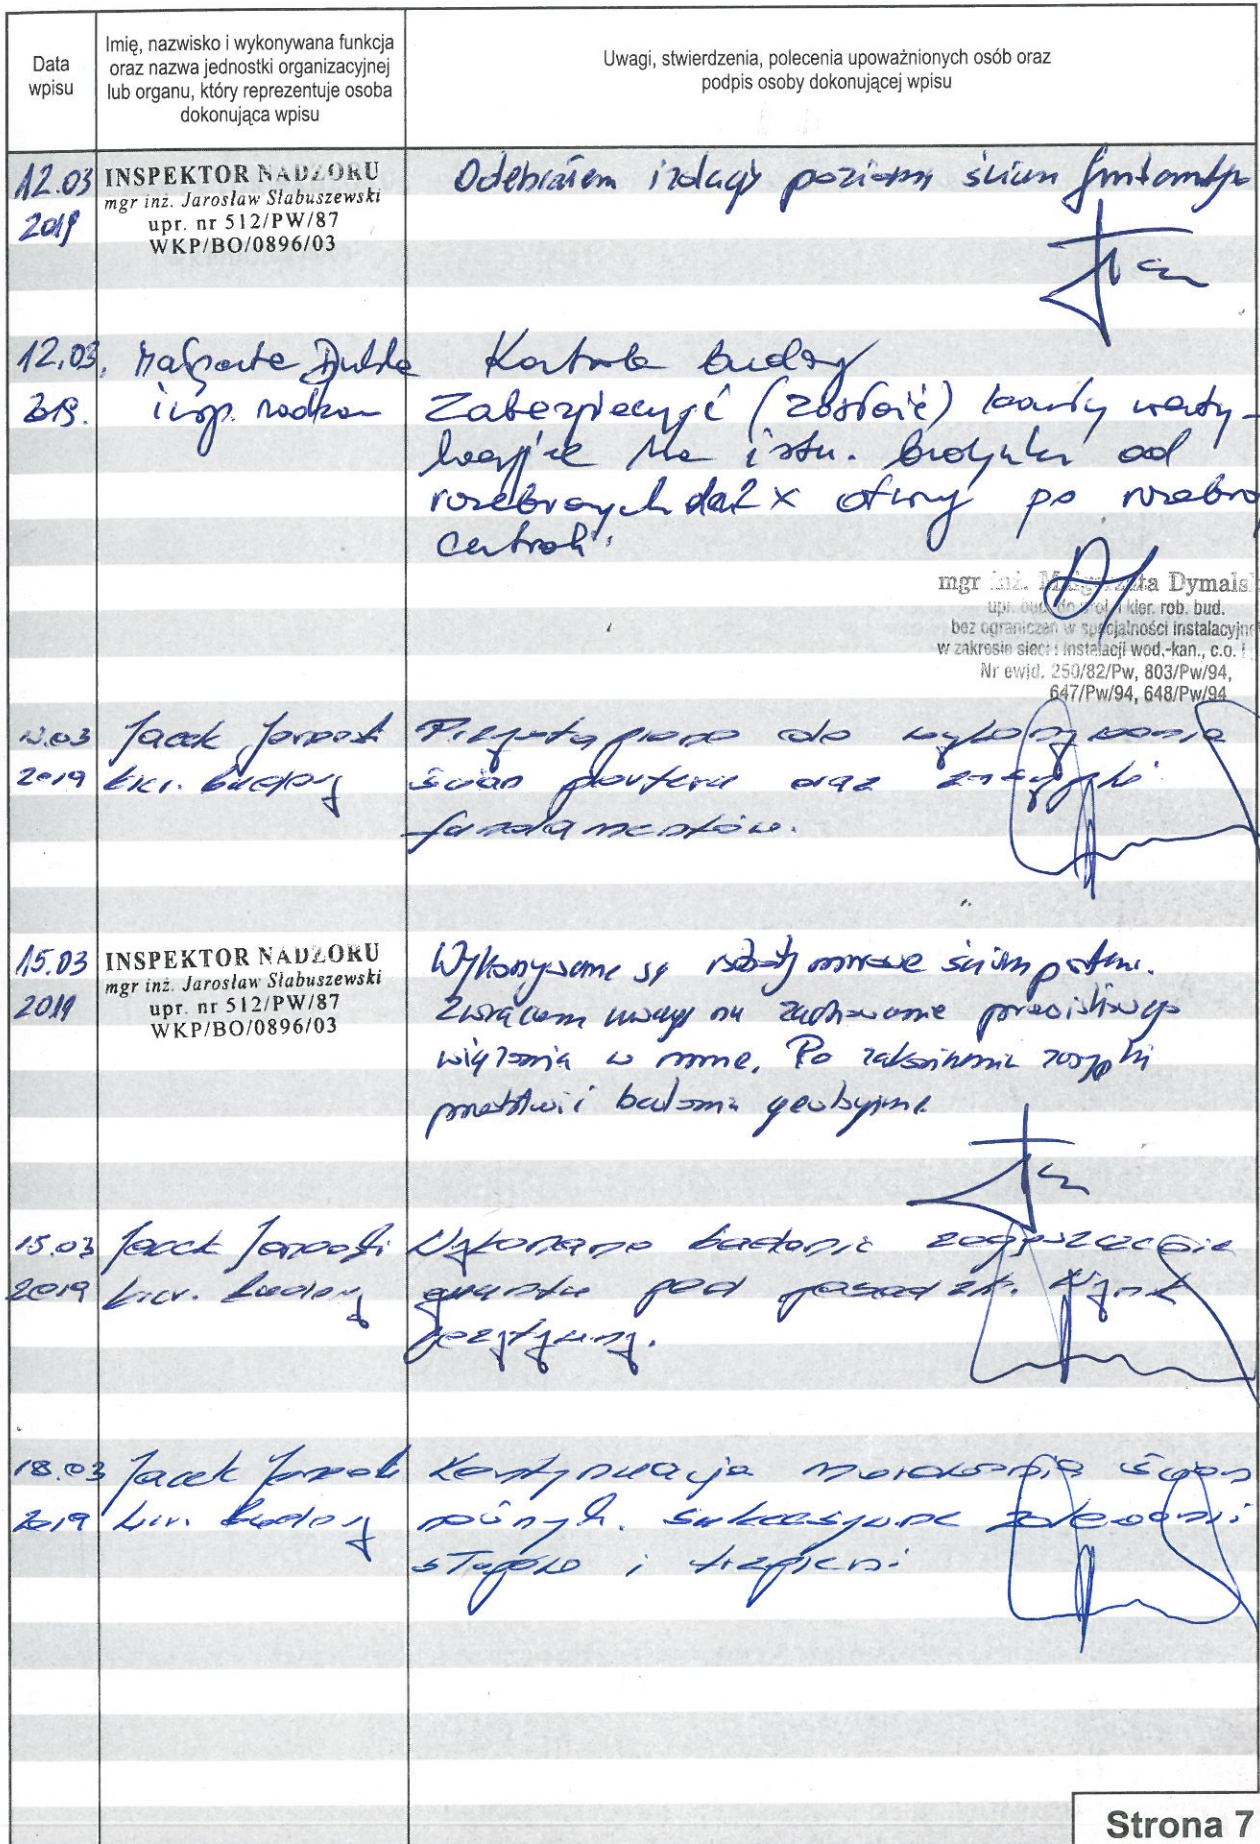 Data
wpisu
Imię, nazwisko i wykonywana funkcja
oraz nazwa jednostki organizacyjnej
lub organu, który reprezentuje osoba
dokonująca wpisu
Uwagi, stwierdzenia, polecenia upoważnionych osób oraz
podpis osoby dokonującej wpisu
12.03
2019
INSPEKTOR NADZORU
mgr inż. Jarosław Słabuszewski
upr. nr 512/PW/87
WKP/BO/0896/03
Odebrałem izolację poziomą ścian
12.03.
2019.
insp. nadzoru
Kontrola budowy
Zabezpieczyć kanały
na istn. budynku od
rozebranych otwory po
central.
mgr inż. Małgorzata Dymals
upr. bud. do proj. i kier. rob. bud.
bez ograniczeń w specjalności instalacyjne
w zakresie sieci i instalacji wod.-kan., c.o. i
Nr ewid. 250/82/Pw, 803/Pw/94,
647/Pw/94, 648/Pw/94
03
2019
Jacek
kier. budowy
Przystąpiono do wykonywania
ścian parteru oraz zasypki
fundamentów.
15.03
2019
INSPEKTOR NADZORU
mgr inż. Jarosław Słabuszewski
upr. nr 512/PW/87
WKP/BO/0896/03
Wykonywane są roboty murowe ścian parteru.
Zwracam uwagę na zachowanie prawidłowego
wiązania w murze. Po zakończeniu zasypki
przedstawić badania geotechniczne
15.03
2019
Jacek
kier. budowy
Wykonano badanie zagęszczenia
gruntu pod posadzk. Wynik
pozytywny.
18.03
2019
Jacek
kier. budowy
Kontynuacja murowania ścian
nośnych. Sukcesywne zalewanie
słupów i trzpieni
Strona 7